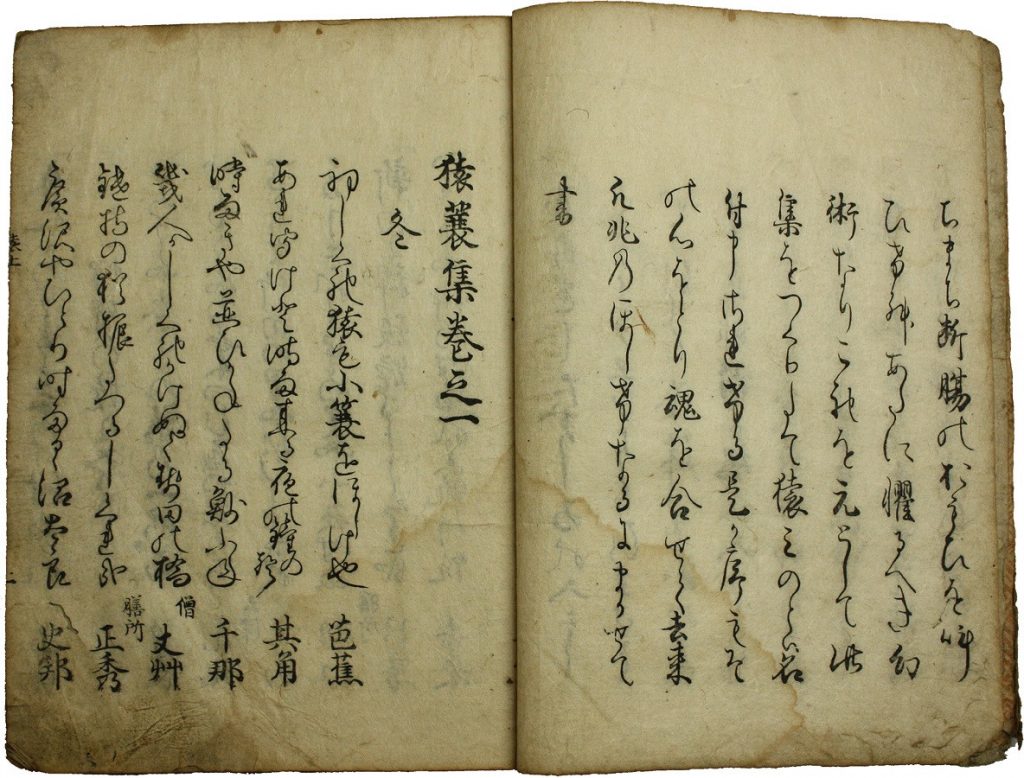 たちまち断腸のおもひを叫
ひけむあたに懼るへき幻
術なりこれを元として此
集をつくりたて猿みのとは名
付申されける是か序もそ
の心をとり魂を合せて去来
凡兆のほしけなるにまかせて
書
猿蓑集巻之一
冬
初しくれ猿も小蓑をほしけ也 芭蕉
あれ聞けと時雨来る夜の鐘の声 其角
時雨きや並ひかねたる魦ふね 千那
幾人かしくれかけぬく勢田の橋 僧 丈艸
鑓持の猶振たつるしくれ哉 膳所 正秀
広沢やひとり時雨るゝ沼太良 史邦
一